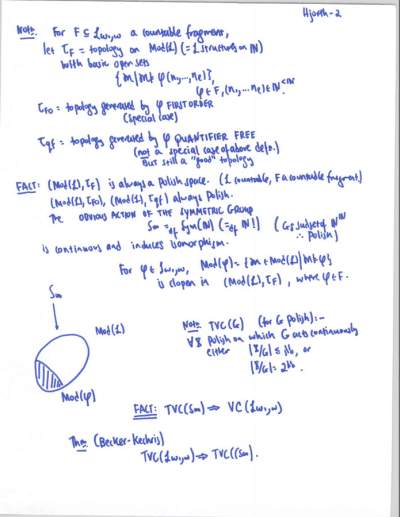 Hjorth-2
Note: For F ⊆ L_{ω₁,ω} a countable fragment,
let τ_F = topology on Mod(L) (= L structures on ℕ)
with basic open sets
{M | M ⊨ φ(n₁,...,n_ℓ)},
φ ∈ F, (n₁,...n_ℓ) ∈ ℕ^{<ℕ}.
τ_{FO} = topology generated by φ FIRST ORDER
(special case)
τ_{qf} = topology generated by φ QUANTIFIER FREE
(not a special case of above defn.)
But still a "good" topology
FACT: (Mod(L), τ_F) is always a Polish space. (L countable, F a countable fragment)
(Mod(L), τ_{FO}), (Mod(L), τ_{qf}) always Polish.
The OBVIOUS ACTION OF THE SYMMETRIC GROUP
S_∞ =_{df} Sym(ℕ) (=_{df} ℕ!) (G_δ subset of ℕ^ℕ
∴ Polish)
is continuous and induces isomorphism.
For φ ∈ L_{ω₁,ω}, Mod(φ) = {M ∈ Mod(L) | M ⊨ φ}
is clopen in (Mod(L), τ_F), where φ ∈ F.
S_∞
Mod(L)
Mod(φ)
Note: TVC(G) (for G Polish):-
∀X Polish on which G acts continuously
either |X/G| ≤ ℵ₀, or
|X/G| = 2^ℵ₀.
FACT: TVC(S_∞) ⇒ VC(L_{ω₁,ω})
Thm (Becker-Kechris)
TVC(L_{ω₁,ω}) ⇒ TVC(S_∞).